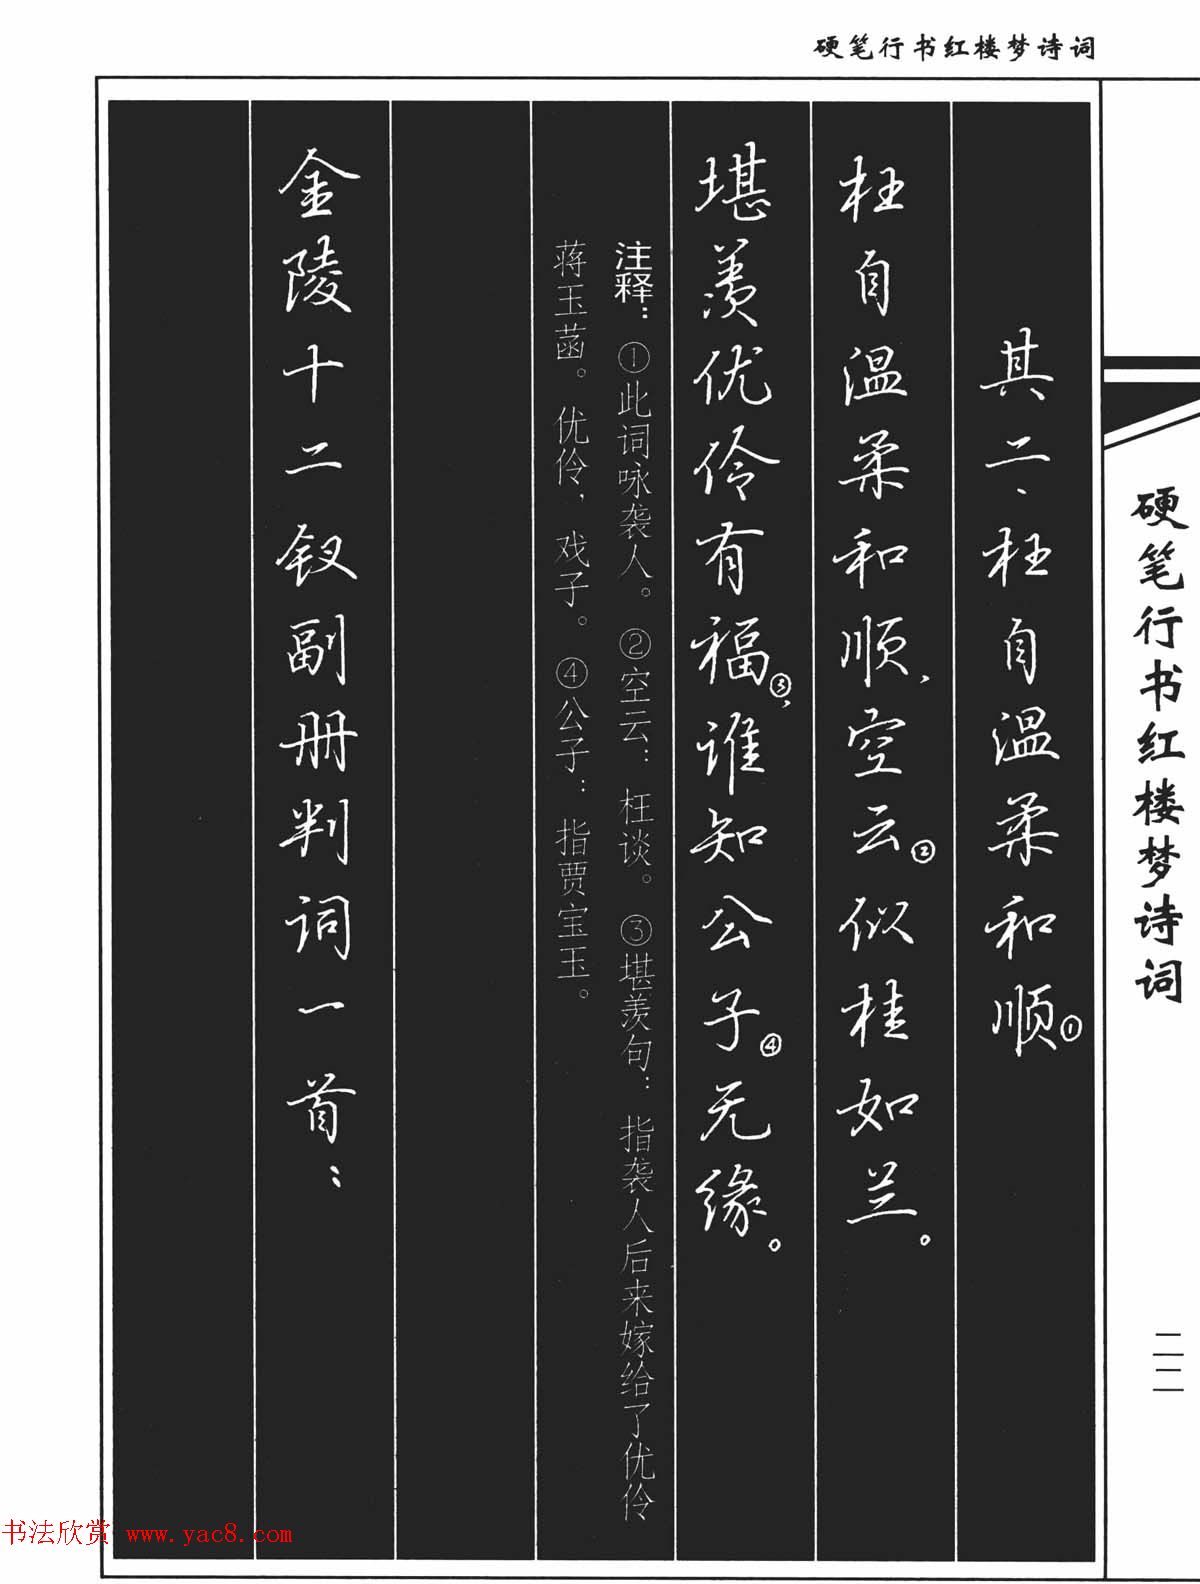 硬笔行书红楼梦诗词
硬笔行书红楼梦诗词
二二
其二、枉自温柔和顺①
枉自温柔和顺，空云②似桂如兰。
堪羡优伶有福③，谁知公子④无缘。
注释：①此词咏袭人。②空云：枉谈。③堪羡句：指袭人后来嫁给了优伶
蒋玉菡。优伶，戏子。④公子：指贾宝玉。
金陵十二钗副册判词一首：
书法欣赏 www.yac8.com